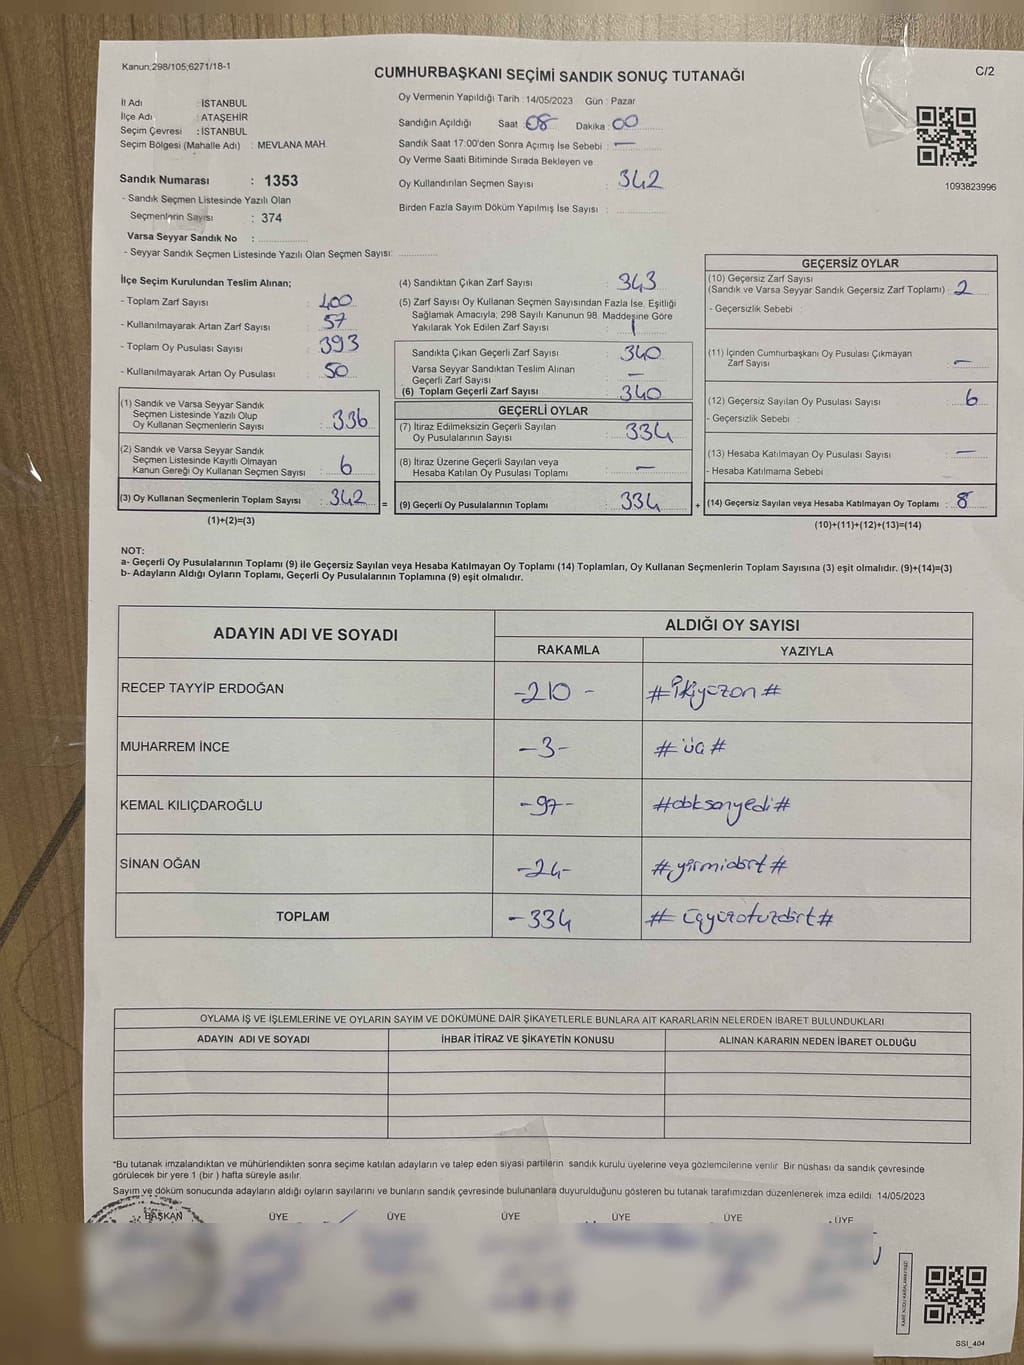 Kanun:298/105;6271/18-1
CUMHURBAŞKANI SEÇİMİ SANDIK SONUÇ TUTANAĞI
C/2
İl Adı : İSTANBUL
İlçe Adı : ATAŞEHİR
Seçim Çevresi : İSTANBUL
Seçim Bölgesi (Mahalle Adı) : MEVLANA MAH.
Sandık Numarası : 1353
- Sandık Seçmen Listesinde Yazılı Olan
Seçmenlerin Sayısı : 374
Varsa Seyyar Sandık No :
- Seyyar Sandık Seçmen Listesinde Yazılı Olan Seçmen Sayısı:
Oy Vermenin Yapıldığı Tarih : 14/05/2023 Gün : Pazar
Sandığın Açıldığı Saat : 08 Dakika : 00
Sandık Saat 17:00'den Sonra Açımış İse Sebebi : —
Oy Verme Saati Bitiminde Sırada Bekleyen ve
Oy Kullandırılan Seçmen Sayısı : 342
Birden Fazla Sayım Döküm Yapılmış İse Sayısı :
1093823996
İlçe Seçim Kurulundan Teslim Alınan;
- Toplam Zarf Sayısı : 400
- Kullanılmayarak Artan Zarf Sayısı : 57
- Toplam Oy Pusulası Sayısı : 393
- Kullanılmayarak Artan Oy Pusulası : 50
(1) Sandık ve Varsa Seyyar Sandık
Seçmen Listesinde Yazılı Olup
Oy Kullanan Seçmenlerin Sayısı : 336
(2) Sandık ve Varsa Seyyar Sandık
Seçmen Listesinde Kayıtlı Olmayan
Kanun Gereği Oy Kullanan Seçmen Sayısı : 6
(3) Oy Kullanan Seçmenlerin Toplam Sayısı : 342 =
(1)+(2)=(3)
(4) Sandıktan Çıkan Zarf Sayısı : 343
(5) Zarf Sayısı Oy Kullanan Seçmen Sayısından Fazla İse, Eşitliği
Sağlamak Amacıyla; 298 Sayılı Kanunun 98. Maddesine Göre
Yakılarak Yok Edilen Zarf Sayısı : 1
Sandıkta Çıkan Geçerli Zarf Sayısı : 340
Varsa Seyyar Sandıktan Teslim Alınan
Geçerli Zarf Sayısı : —
(6) Toplam Geçerli Zarf Sayısı : 340
GEÇERLİ OYLAR
(7) İtiraz Edilmeksizin Geçerli Sayılan
Oy Pusulalarının Sayısı : 334
(8) İtiraz Üzerine Geçerli Sayılan veya
Hesaba Katılan Oy Pusulası Toplamı : —
(9) Geçerli Oy Pusulalarının Toplamı : 334 +
GEÇERSİZ OYLAR
(10) Geçersiz Zarf Sayısı
(Sandık ve Varsa Seyyar Sandık Geçersiz Zarf Toplamı) : 2
- Geçersizlik Sebebi :
(11) İçinden Cumhurbaşkanı Oy Pusulası Çıkmayan
Zarf Sayısı : —
(12) Geçersiz Sayılan Oy Pusulası Sayısı : 6
- Geçersizlik Sebebi :
(13) Hesaba Katılmayan Oy Pusulası Sayısı : —
- Hesaba Katılmama Sebebi :
(14) Geçersiz Sayılan veya Hesaba Katılmayan Oy Toplamı : 8
(10)+(11)+(12)+(13)=(14)
NOT:
a- Geçerli Oy Pusulalarının Toplamı (9) ile Geçersiz Sayılan veya Hesaba Katılmayan Oy Toplamı (14) Toplamları, Oy Kullanan Seçmenlerin Toplam Sayısına (3) eşit olmalıdır. (9)+(14)=(3)
b- Adayların Aldığı Oyların Toplamı, Geçerli Oy Pusulalarının Toplamına (9) eşit olmalıdır.
ADAYIN ADI VE SOYADI
ALDIĞI OY SAYISI
RAKAMLA YAZIYLA
RECEP TAYYİP ERDOĞAN -210- #ikiyüzon#
MUHARREM İNCE -3- #üç#
KEMAL KILIÇDAROĞLU -97- #doksanyedi#
SİNAN OĞAN -24- #yirmidört#
TOPLAM -334 #üçyüzotuzdört#
OYLAMA İŞ VE İŞLEMLERİNE VE OYLARIN SAYIM VE DÖKÜMÜNE DAİR ŞİKAYETLERLE BUNLARA AİT KARARLARIN NELERDEN İBARET BULUNDUKLARI
ADAYIN ADI VE SOYADI İHBAR İTİRAZ VE ŞİKAYETİN KONUSU ALINAN KARARIN NEDEN İBARET OLDUĞU
*Bu tutanak imzalandıktan ve mühürlendikten sonra seçime katılan adayların ve talep eden siyasi partilerin sandık kurulu üyelerine veya gözlemcilerine verilir. Bir nüshası da sandık çevresinde
görülecek bir yere 1 (bir ) hafta süreyle asılır.
Sayım ve döküm sonucunda adayların aldığı oyların sayılarını ve bunların sandık çevresinde bulunanlara duyurulduğunu gösteren bu tutanak tarafımızdan düzenlenerek imza edildi. 14/05/2023
BAŞKAN ÜYE ÜYE ÜYE ÜYE ÜYE ÜYE
SSI_404